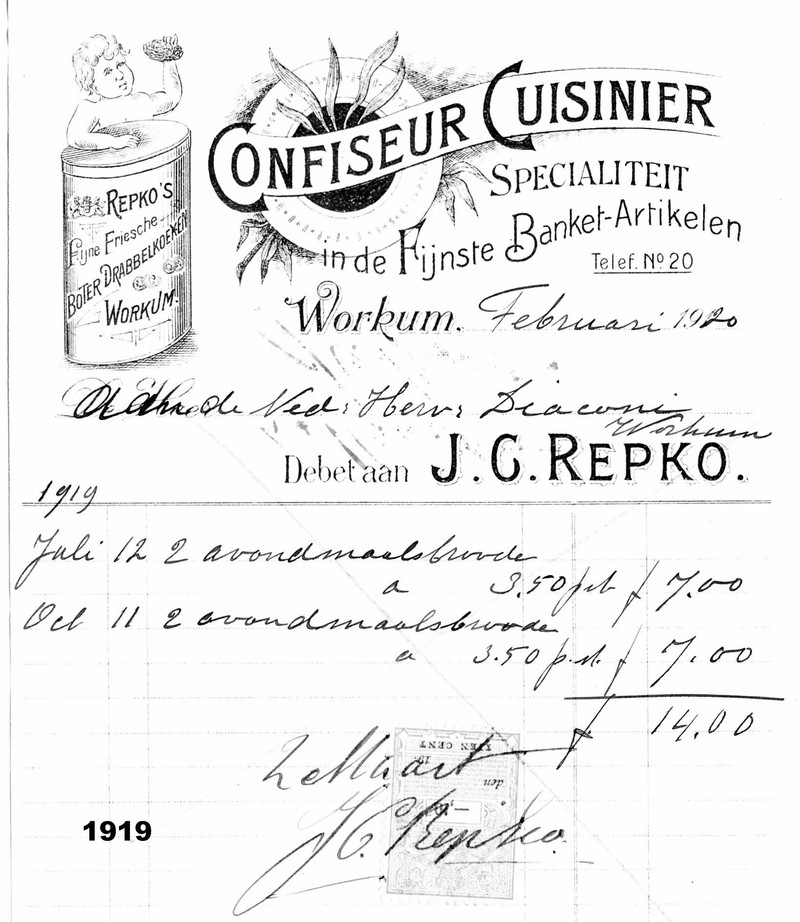 CONFISEUR CUISINIER
SPECIALITEIT
in de Fijnste Banket-Artikelen
Telef. No 20
REPKO'S
Fijne Friesche
BOTER DRABBELKOEKEN
WORKUM.
Workum, Februari 1920
de Ned: Herv: Diaconi
Workum
Debet aan J.C. REPKO.
1919
Juli 12 2 avondmaalsbroode
a 3.50 p.st. f 7.00
Oct 11 2 avondmaalsbroode
a 3.50 p.st. f 7.00
f 14.00
TIEN CENT
19
den
2 Maart
J.C. Repko.
1919